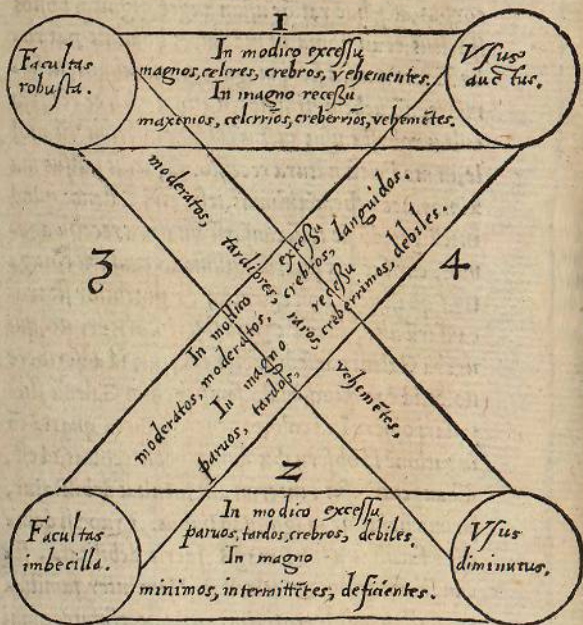 1
Facultas
robusta.
In modico excessu
magnos, celeres, crebros, vehementes.
In magno recessu
maximos, celerrīos, creberrīos, vehemētes.
Vsus
auctus.
3
4
moderatos, tardiores, raros, vehemētes,
In modico excessu
moderatos, moderatos, crebros, languidos.
In magno recessu
paruos, tardos, creberrimos, debiles.
2
Facultas
imbecilla.
In modico excessu
paruos, tardos, crebros, debiles.
In magno
minimos, intermittētes, deficientes.
Vsus
diminutus.